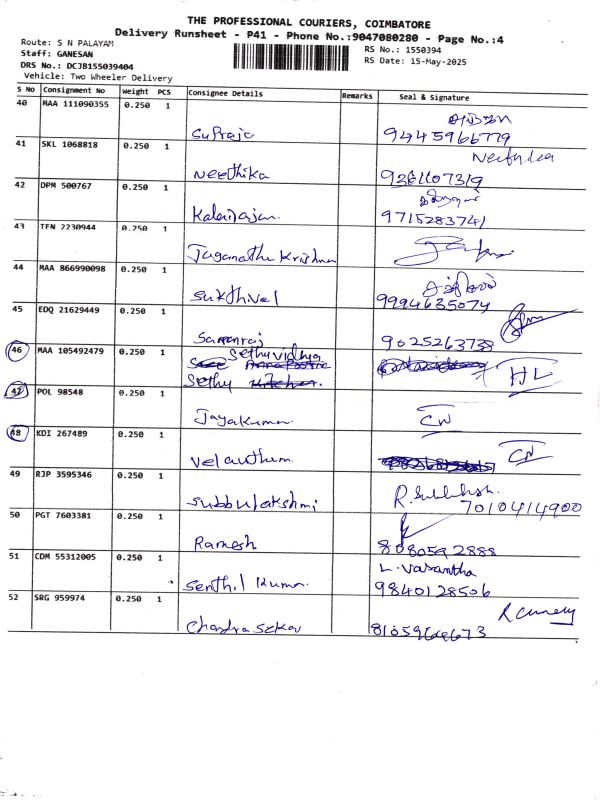 THE PROFESSIONAL COURIERS, COIMBATORE
Delivery Runsheet - P41 - Phone No.:9047080280 - Page No.:4
Route: S N PALAYAM
Staff: GANESAN
DRS No.: DCJB155039404
Vehicle: Two Wheeler Delivery
RS No.: 1550394
RS Date: 15-May-2025
S No Consignment No Weight PCS Consignee Details Remarks Seal & Signature
40 MAA 111090355 0.250 1
9445966779
41 SKL 1068818 0.250 1
Neethika
42 DPM 500767 0.250 1
Kalairajan. 9715283741
43 TEN 2230944 0.250 1
Jaganatha Krishnan
44 MAA 866990098 0.250 1 சக்திவேல்
Sukthivel 9994635074
45 EDQ 21629449 0.250 1
Saranraj 9025263738
46 MAA 105492479 0.250 1 Sethuvidhya
HL
Sethy
47 POL 98548 0.250 1
Jayakumar CN
48 KDI 267489 0.250 1 CN
Velantham
49 RJP 3595346 0.250 1
Subbulakshmi 7010414900
50 PGT 7603381 0.250 1
Ramesh 8080592888
51 CDM 55312005 0.250 1 L. Vasantha
Senthil Kumar. 9840128506
52 SRG 959974 0.250 1
Chandra Sekar